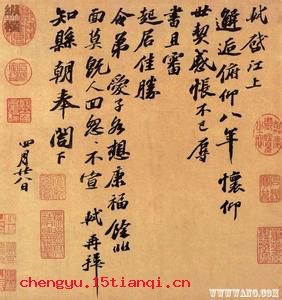 軾啓江上
邂逅俯仰八年懷仰
世契感悵不已辱
書且審
起居佳勝
令弟愛子各想康福餘非
面莫既人回怱〻不宣 軾再拜
知縣朝奉閤下
四月廿八日
chengyu.15tianqi.cn